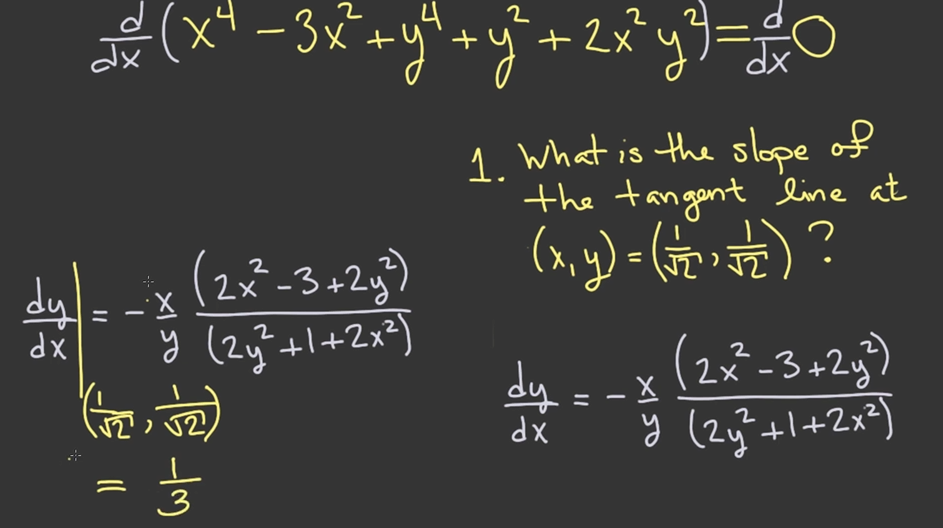 d/dx (x⁴ − 3x² + y⁴ + y² + 2x² y²) = d/dx 0
1. What is the slope of
the tangent line at
(x,y) = (1/√2, 1/√2) ?
dy/dx | = − x/y (2x² − 3 + 2y²)/(2y² + 1 + 2x²)
(1/√2, 1/√2)
= 1/3
dy/dx = − x/y (2x² − 3 + 2y²)/(2y² + 1 + 2x²)